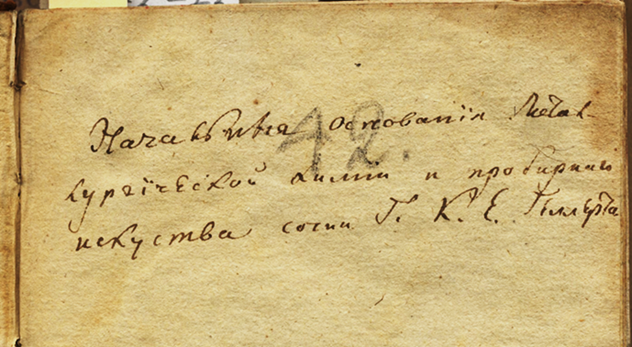 Началныя основаніи метал-
лургической химіи и пробирнаго
искуства сочин Г. К. Е. Геллерта
42.